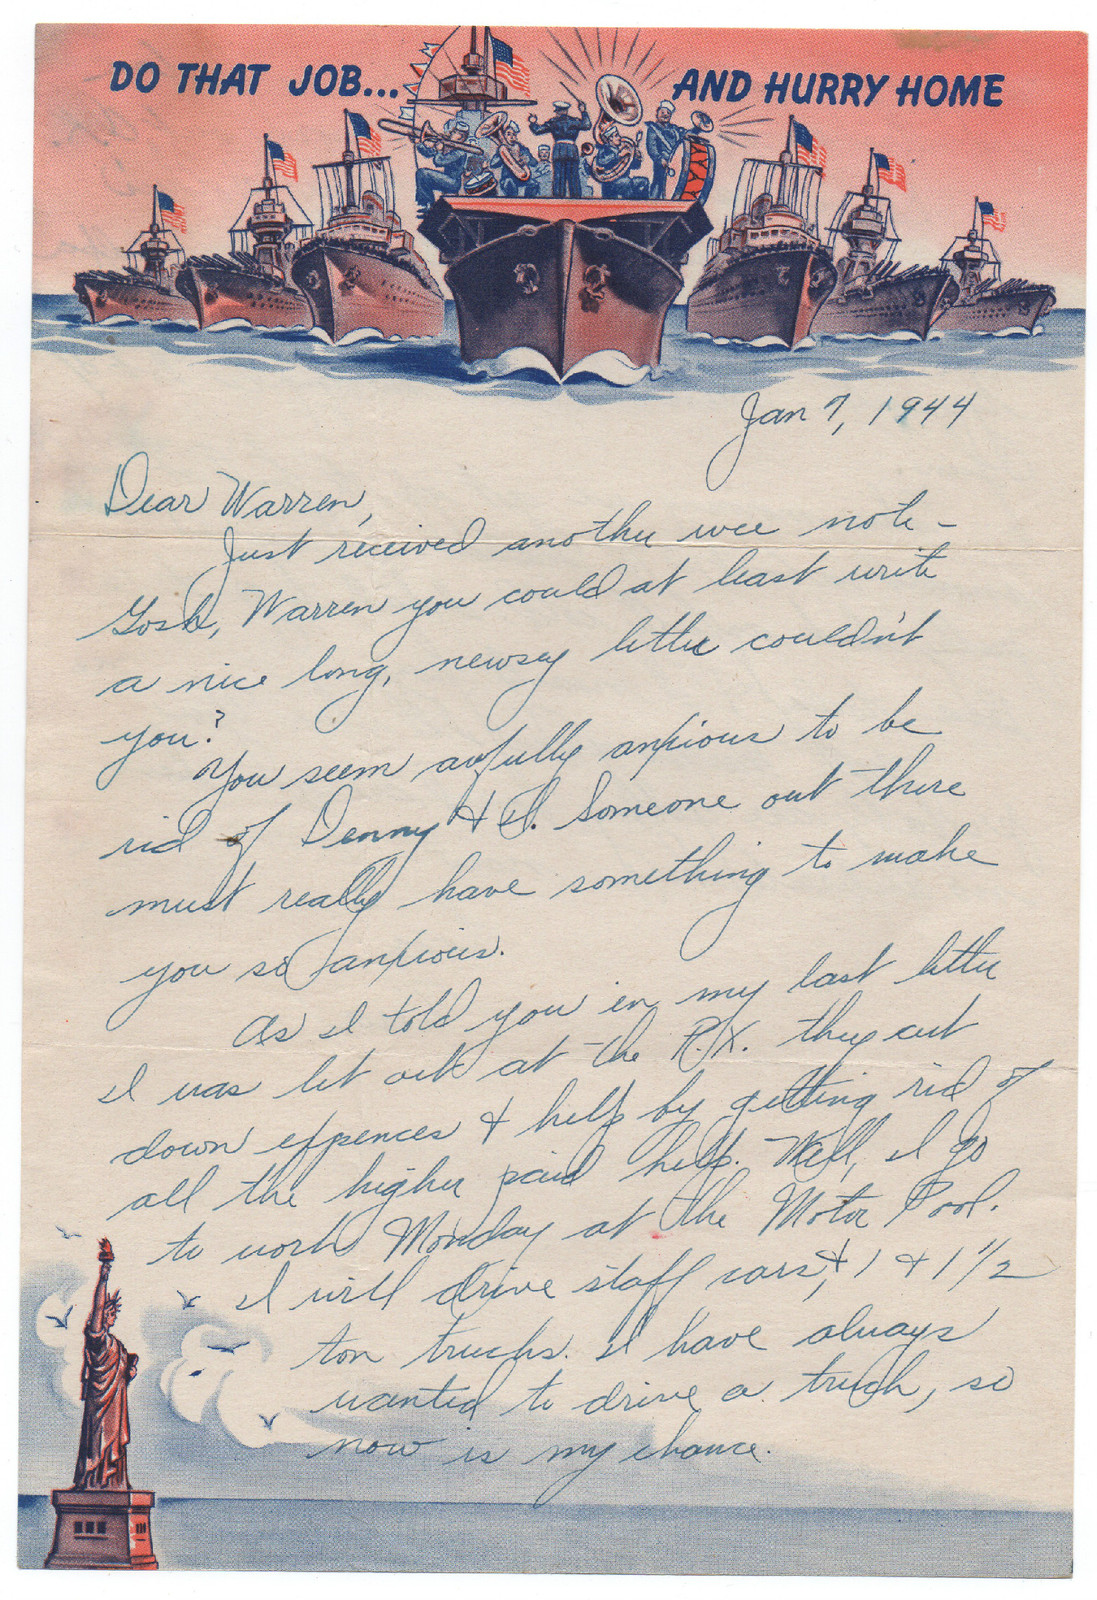 DO THAT JOB... AND HURRY HOME
Jan 7, 1944
Dear Warren,
Just received another wee note -
Gosh, Warren you could at least write
a nice long, newsey letter couldn't
you?
You seem awfully anxious to be
rid of Denny & I. Someone out there
must really have something to make
you so anxious.
As I told you in my last letter
I was let out at the P.X. they cut
down expences & help by getting rid of
all the higher paid help. Well, I go
to work Monday at the Motor Pool.
I will drive staff cars, & 1 & 1 1/2
ton trucks. I have always
wanted to drive a truck, so
now is my chance.